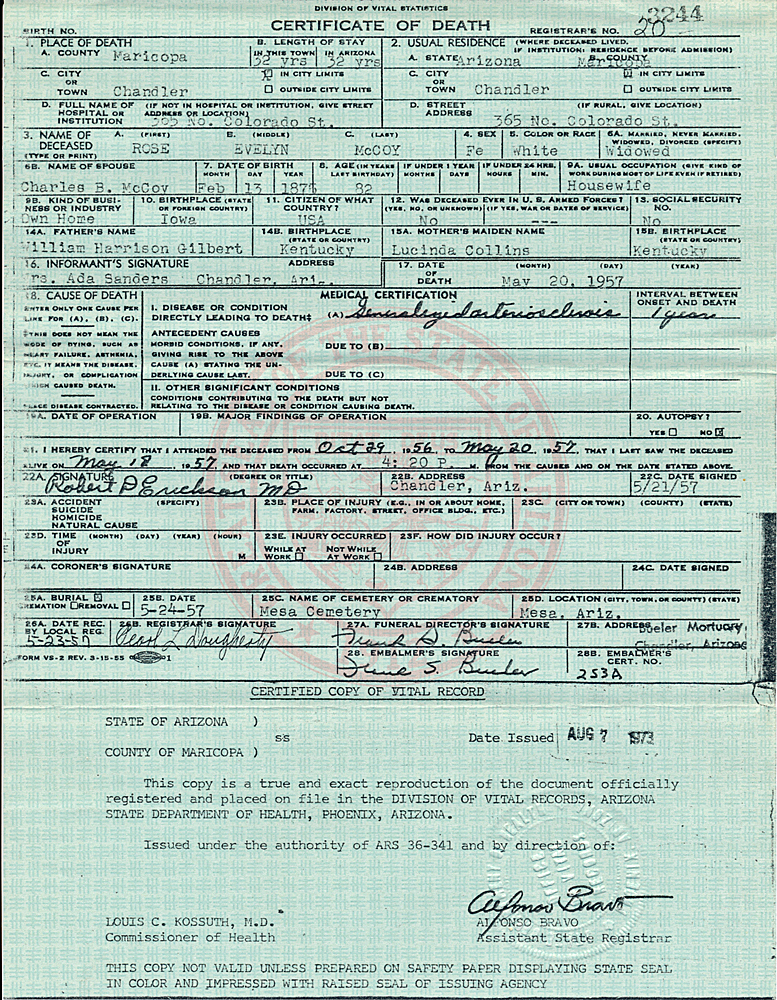 DIVISION OF VITAL STATISTICS
CERTIFICATE OF DEATH
3244
BIRTH NO.
REGISTRAR'S NO. 20
1. PLACE OF DEATH
A. COUNTY Maricopa
B. LENGTH OF STAY
IN THIS TOWN IN ARIZONA
32 yrs 32 yrs
2. USUAL RESIDENCE (WHERE DECEASED LIVED. IF INSTITUTION: RESIDENCE BEFORE ADMISSION)
A. STATE Arizona B. COUNTY Maricopa
C. CITY OR TOWN Chandler
IN CITY LIMITS
OUTSIDE CITY LIMITS
C. CITY OR TOWN Chandler
IN CITY LIMITS
OUTSIDE CITY LIMITS
D. FULL NAME OF HOSPITAL OR INSTITUTION (IF NOT IN HOSPITAL OR INSTITUTION, GIVE STREET ADDRESS OR LOCATION)
No. Colorado St.
D. STREET ADDRESS (IF RURAL, GIVE LOCATION)
365 No. Colorado St.
3. NAME OF DECEASED (TYPE OR PRINT)
A. (FIRST) B. (MIDDLE) C. (LAST)
ROSE EVELYN McCOY
4. SEX Fe
5. COLOR OR RACE White
6A. MARRIED, NEVER MARRIED, WIDOWED, DIVORCED (SPECIFY)
Widowed
6B. NAME OF SPOUSE
Charles B. McCoy
7. DATE OF BIRTH
MONTH DAY YEAR
Feb 13 1875
8. AGE (IN YEARS LAST BIRTHDAY) 82
IF UNDER 1 YEAR MONTHS DAYS
IF UNDER 24 HRS. HOURS MIN.
9A. USUAL OCCUPATION (GIVE KIND OF WORK DURING MOST OF LIFE EVEN IF RETIRED)
Housewife
9B. KIND OF BUSINESS OR INDUSTRY
Own Home
10. BIRTHPLACE (STATE OR FOREIGN COUNTRY)
Iowa
11. CITIZEN OF WHAT COUNTRY?
USA
12. WAS DECEASED EVER IN U. S. ARMED FORCES?
(YES, NO, OR UNKNOWN) (IF YES, WAR OR DATES OF SERVICE)
No ---
13. SOCIAL SECURITY NO.
No
14A. FATHER'S NAME
William Harrison Gilbert
14B. BIRTHPLACE (STATE OR COUNTRY)
Kentucky
15A. MOTHER'S MAIDEN NAME
Lucinda Collins
15B. BIRTHPLACE (STATE OR COUNTRY)
Kentucky
16. INFORMANT'S SIGNATURE ADDRESS
rs. Ada Sanders Chandler, Ariz.
17. DATE OF DEATH (MONTH) (DAY) (YEAR)
May 20, 1957
18. CAUSE OF DEATH
ENTER ONLY ONE CAUSE PER LINE FOR (A), (B), (C).
THIS DOES NOT MEAN THE MODE OF DYING, SUCH AS HEART FAILURE, ASTHENIA, ETC. IT MEANS THE DISEASE, INJURY, OR COMPLICATION WHICH CAUSED DEATH.
PLACE DISEASE CONTRACTED.
MEDICAL CERTIFICATION
I. DISEASE OR CONDITION DIRECTLY LEADING TO DEATH‡
(A) Generalized arteriosclerosis
INTERVAL BETWEEN ONSET AND DEATH
1 year
ANTECEDENT CAUSES
MORBID CONDITIONS, IF ANY, GIVING RISE TO THE ABOVE CAUSE (A) STATING THE UNDERLYING CAUSE LAST.
DUE TO (B)
DUE TO (C)
II. OTHER SIGNIFICANT CONDITIONS
CONDITIONS CONTRIBUTING TO THE DEATH BUT NOT RELATING TO THE DISEASE OR CONDITION CAUSING DEATH.
19A. DATE OF OPERATION
19B. MAJOR FINDINGS OF OPERATION
20. AUTOPSY?
YES NO
21. I HEREBY CERTIFY THAT I ATTENDED THE DECEASED FROM Oct 29, 1956, TO May 20, 1957, THAT I LAST SAW THE DECEASED
ALIVE ON May 18 1957, AND THAT DEATH OCCURRED AT 4: 20 P. M. FROM THE CAUSES AND ON THE DATE STATED ABOVE.
22A. SIGNATURE (DEGREE OR TITLE)
Robert D Erickson MD
22B. ADDRESS
Chandler, Ariz.
22C. DATE SIGNED
5/21/57
23A. ACCIDENT SUICIDE HOMICIDE NATURAL CAUSE (SPECIFY)
23B. PLACE OF INJURY (E.G., IN OR ABOUT HOME, FARM, FACTORY, STREET, OFFICE BLDG., ETC.)
23C. (CITY OR TOWN) (COUNTY) (STATE)
23D. TIME OF INJURY (MONTH) (DAY) (YEAR) (HOUR) M
23E. INJURY OCCURRED
WHILE AT WORK NOT WHILE AT WORK
23F. HOW DID INJURY OCCUR?
24A. CORONER'S SIGNATURE
24B. ADDRESS
24C. DATE SIGNED
25A. BURIAL CREMATION REMOVAL
25B. DATE
5-24-57
25C. NAME OF CEMETERY OR CREMATORY
Mesa Cemetery
25D. LOCATION (CITY, TOWN, OR COUNTY) (STATE)
Mesa, Ariz.
26A. DATE REC. BY LOCAL REG.
5-23-57
26B. REGISTRAR'S SIGNATURE
27A. FUNERAL DIRECTOR'S SIGNATURE
27B. ADDRESS
Bueler Mortuary,
Chandler, Arizona
28. EMBALMER'S SIGNATURE
28B. EMBALMER'S CERT. NO.
253A
FORM VS-2 REV. 3-15-55
CERTIFIED COPY OF VITAL RECORD
STATE OF ARIZONA )
ss
COUNTY OF MARICOPA )
Date Issued AUG 7 1973
This copy is a true and exact reproduction of the document officially
registered and placed on file in the DIVISION OF VITAL RECORDS, ARIZONA
STATE DEPARTMENT OF HEALTH, PHOENIX, ARIZONA.
Issued under the authority of ARS 36-341 and by direction of:
Alfonso Bravo
LOUIS C. KOSSUTH, M.D.
Commissioner of Health
ALFONSO BRAVO
Assistant State Registrar
THIS COPY NOT VALID UNLESS PREPARED ON SAFETY PAPER DISPLAYING STATE SEAL
IN COLOR AND IMPRESSED WITH RAISED SEAL OF ISSUING AGENCY